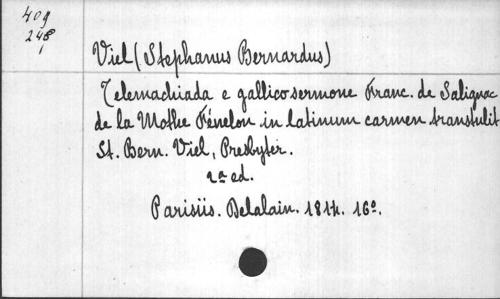 409
248
1
Viel (Stephanus Bernardus)
Telemachiada e gallico sermone Franc. de Salignac
de la Mothe Fénelon in latinum carmen transtulit
St. Bern. Viel, Presbyter.
2a ed.
Parisiis. Delalain. 1814. 16o.